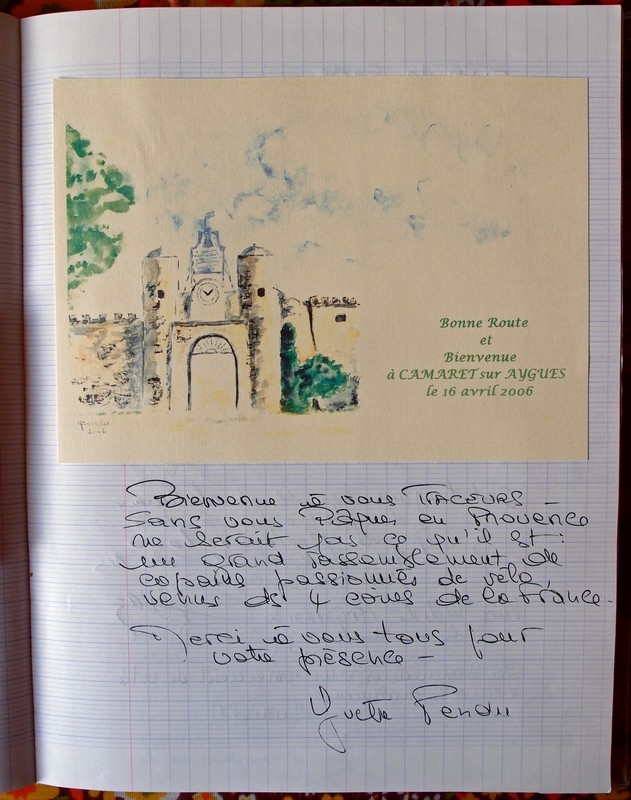 Bonne Route
et
Bienvenue
à CAMARET sur AYGUES
le 16 avril 2006
2006
Bienvenue à vous TRACEURS -
Sans vous Pâques en Provence
ne serait pas ce qu'il est :
un grand rassemblement de
copains passionnés de vélo,
venus des 4 coins de la France.
Merci à vous tous pour
votre présence -
Yvette